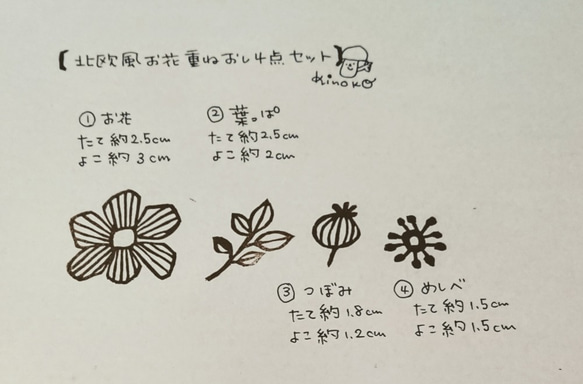 【北欧風お花重ねおし4点セット】
kinoko
① お花
たて約2.5cm
よこ約3cm
② 葉っぱ
たて約2.5cm
よこ約2cm
③ つぼみ
たて約1.8cm
よこ約1.2cm
④ めしべ
たて約1.5cm
よこ約1.5cm